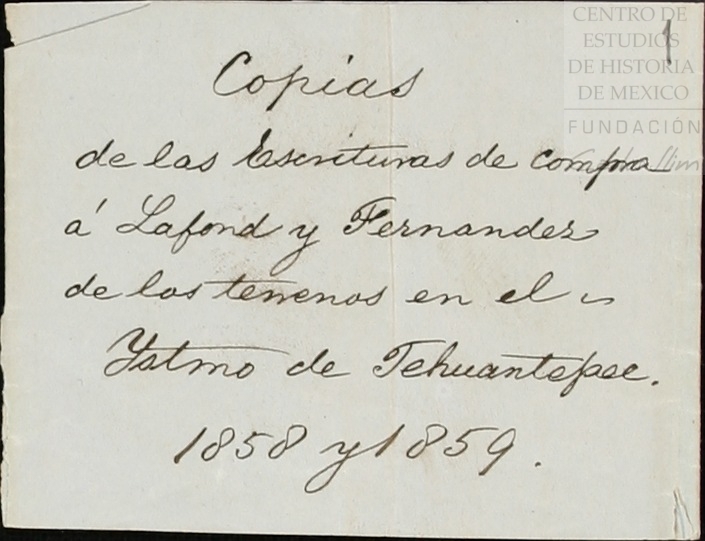 CENTRO DE
ESTUDIOS
DE HISTORIA
DE MEXICO
FUNDACIÓN
1
Copias
de las Escrituras de compra
á Lafond y Fernandez
de los terrenos en el
Ystmo de Tehuantepec.
1858 y 1859.